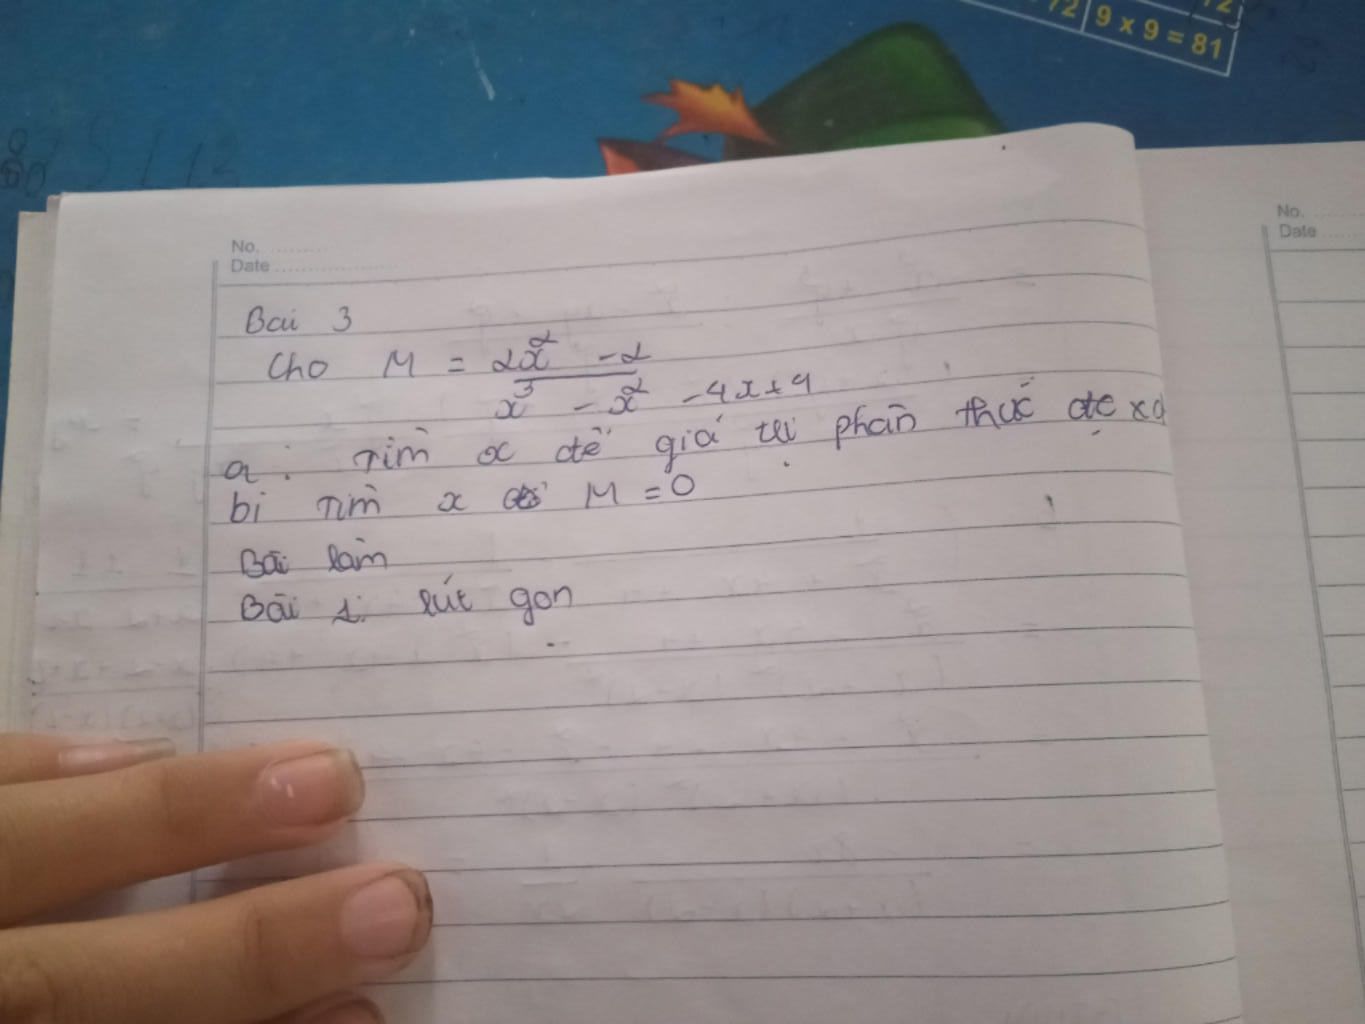 72 9 x 9 = 81
72
No.
Date
No.
Date
Bài 3
Cho M = 2x² - 2
x³ - x² - 4x + 4
a. Tìm x để giá trị phân thức đc xđ
b) Tìm x để M = 0
Bài làm
Bài 1: rút gọn